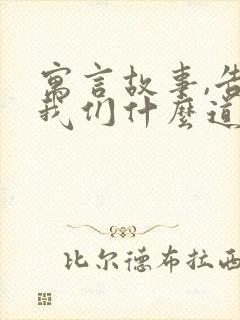 寓言故事,告
我们什麼道
比尔德布拉西